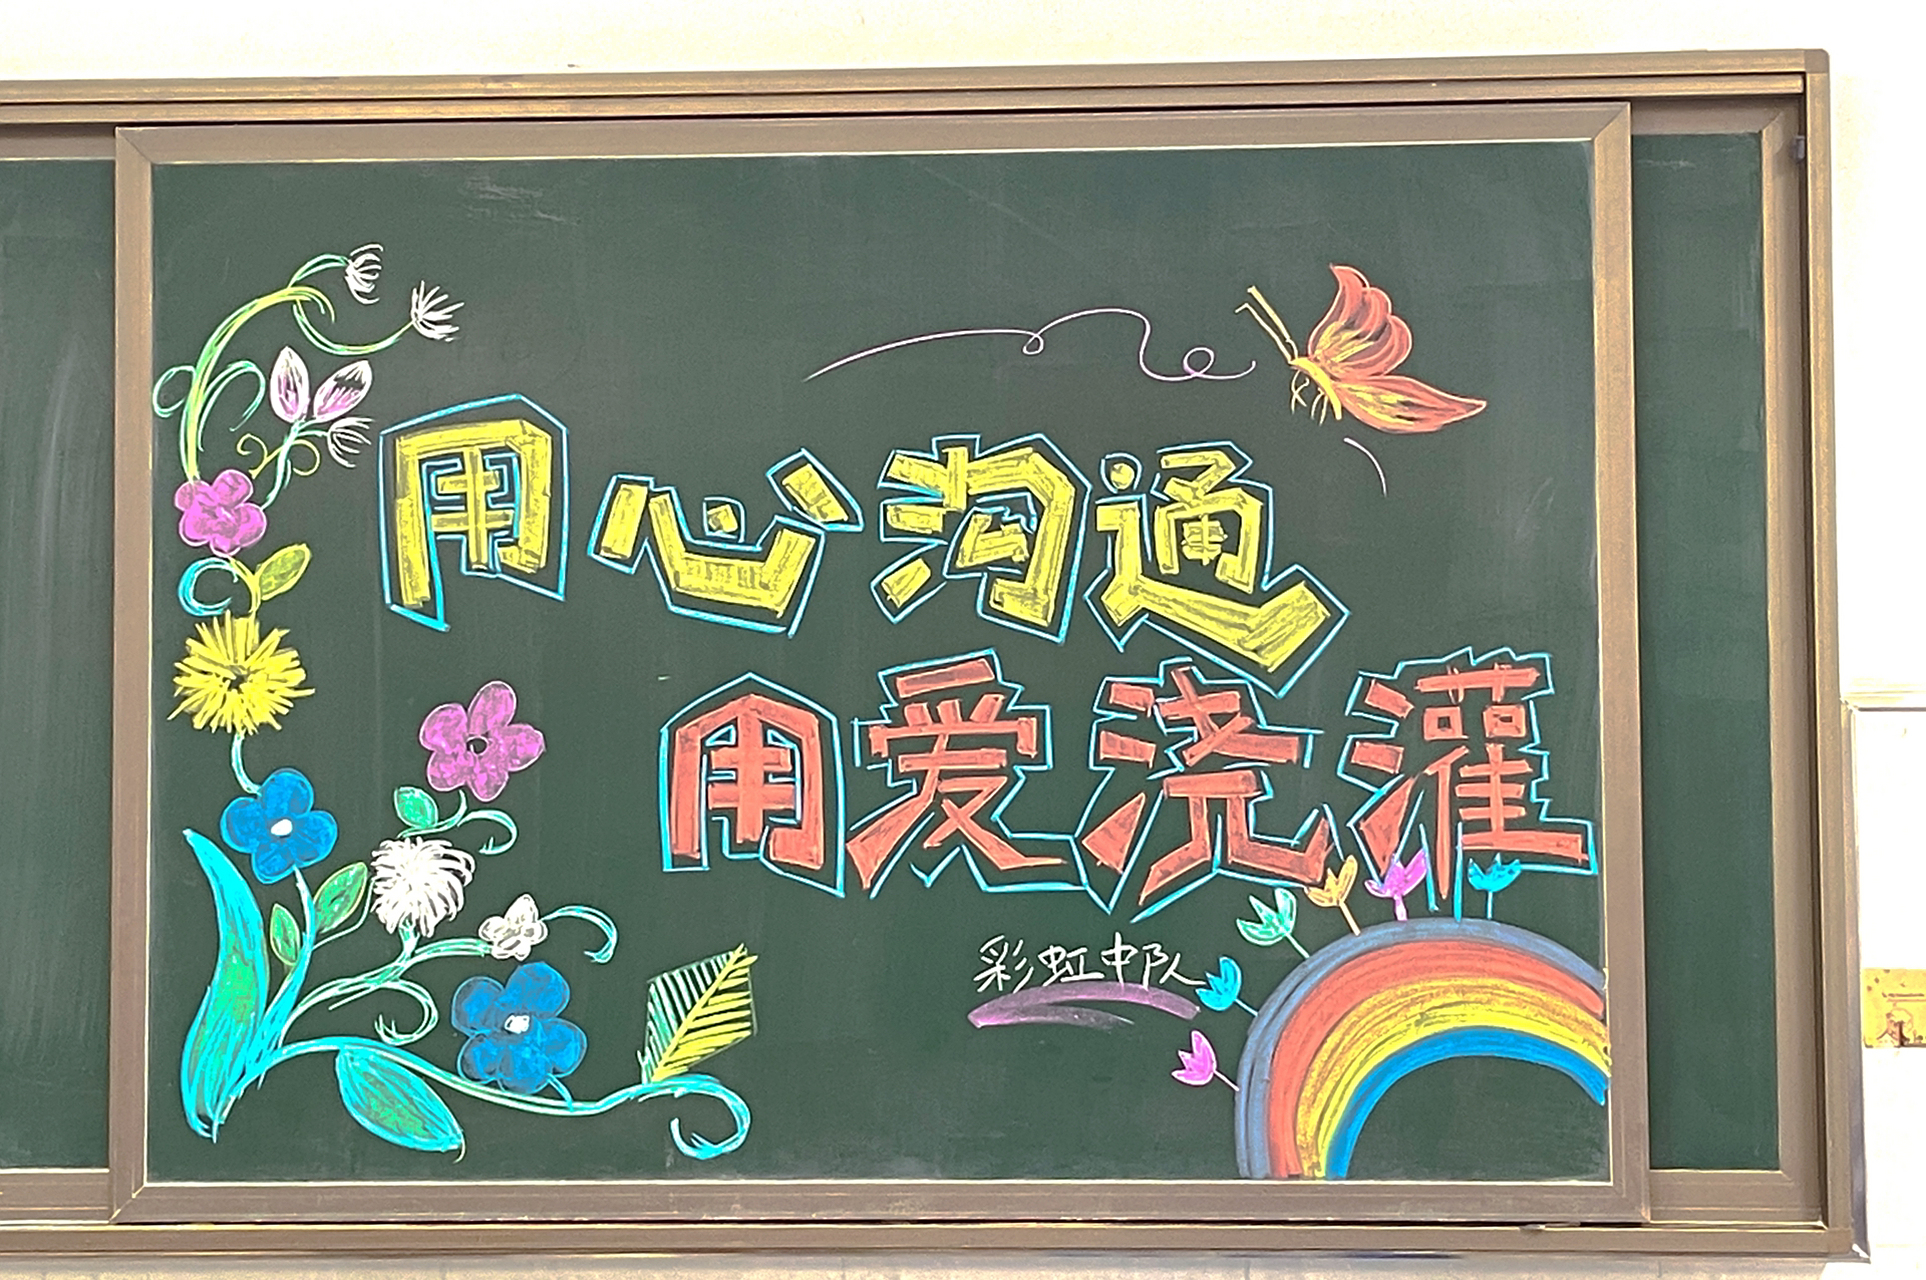 用心沟通
用爱浇灌
彩虹中队